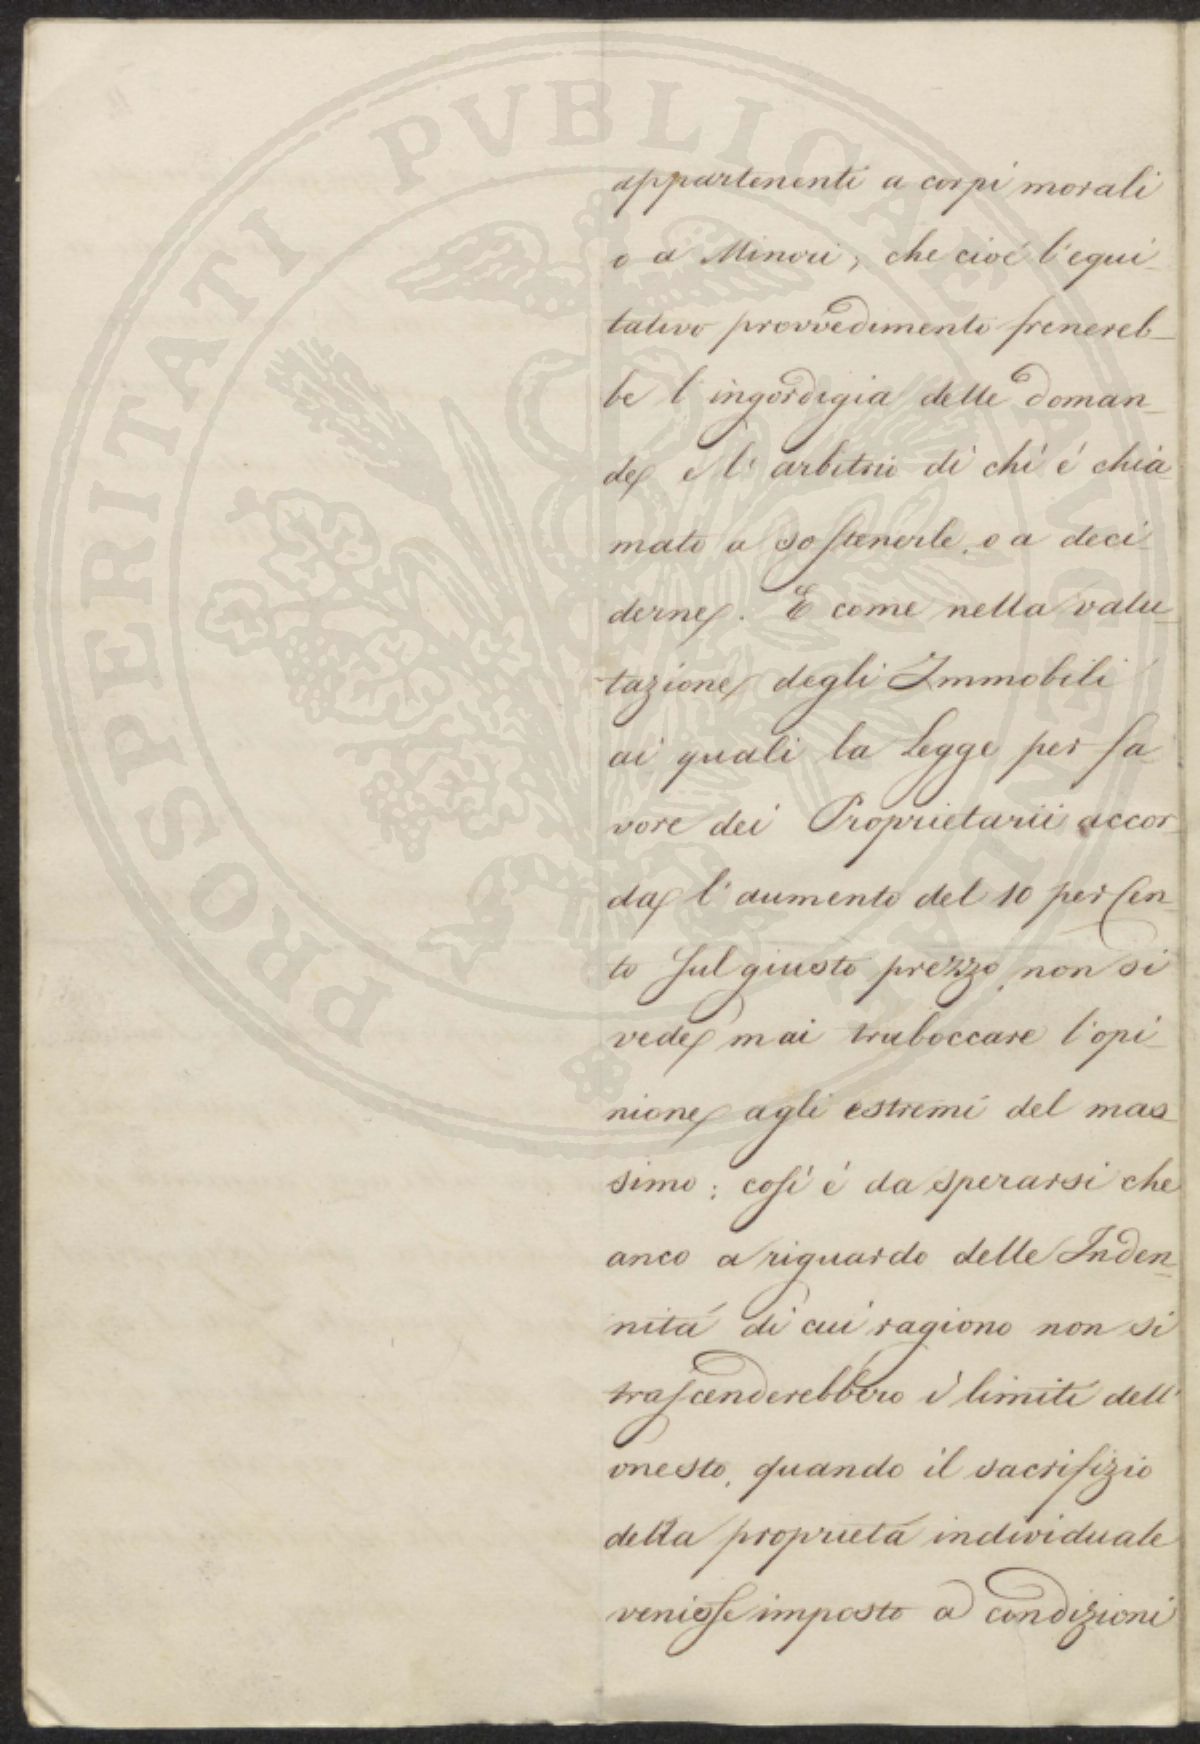 appartenenti a corpi morali
o a Minori; che cioé l'equi-
tativo provvedimento frenereb-
be l'ingordigia delle doman-
de, e l'arbitrio di chi é chia-
mato a sostenerle, o a deci-
derne. E come nella valu-
tazione degli Immobili
ai quali la Legge per fa-
vore dei Proprietarii accor-
da l'aumento del 10 per Cen-
to sul giusto prezzo, non si
vede mai traboccare l'opi-
nione agli estremi del mas-
simo; cosí é da sperarsi che
anco a riguardo delle Inden-
nitá di cui ragiono non si
trascenderebbero i limiti dell'
onesto, quando il sacrifizio
della proprietá individuale
venisse imposto a condizioni
PROSPERITATI PVBLICAE AVGENDAE